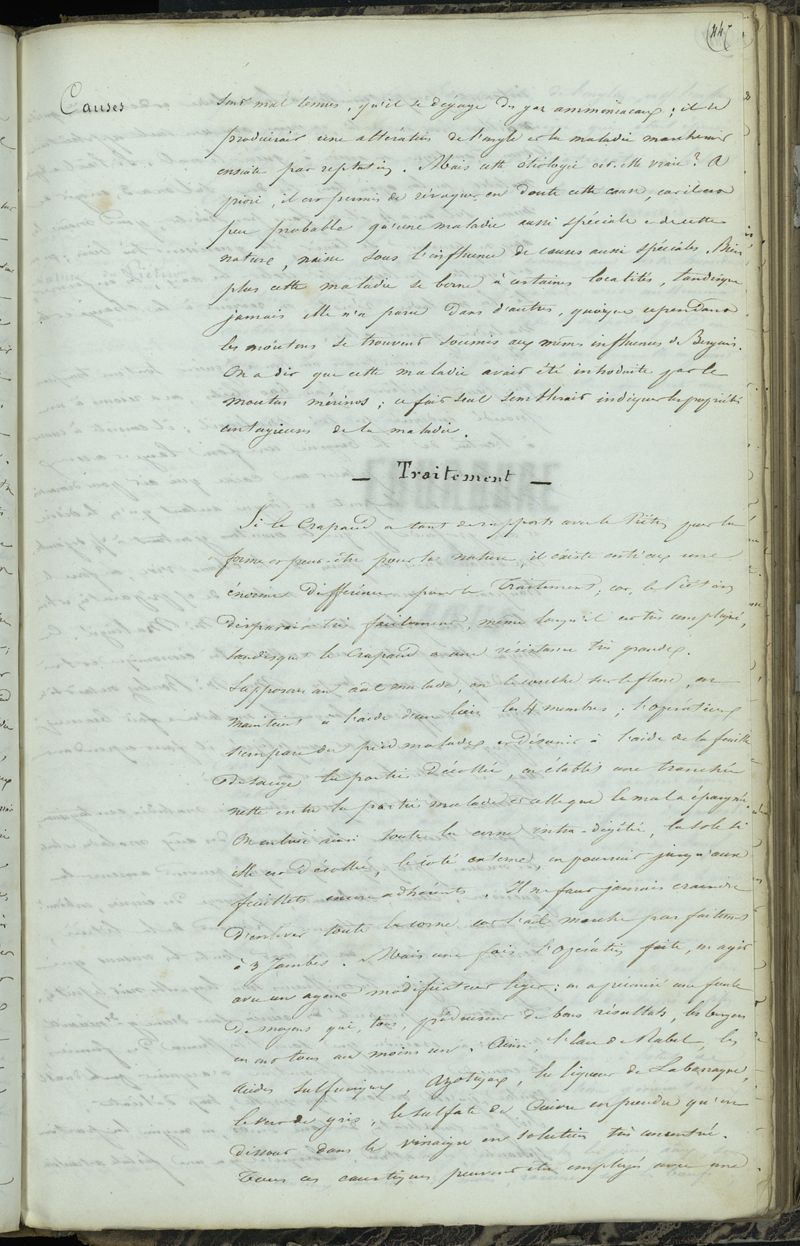 Causes
sont mal tenus, qu'il se dégage des gaz ammoniacaux ; il se
produirait une altération de l'ongle et la maladie marcherait
ensuite par reptation. Mais cette étiologie est-elle vraie ? A
priori, il est permis de révoquer en doute cette cause, car il est
peu probable qu'une maladie aussi spéciale et de cette
nature, naisse sous l'influence de causes aussi spéciales. Bien
plus cette maladie se borne à certaines localités, tandisque
jamais elle n'a paru dans d'autres, quoique cependant
les moutons se trouvent soumis aux mêmes influences de Bergeries.
On a dit que cette maladie avait été introduite par le
mouton mérinos ; ce fait seul semblerait indiquer les propriétés
contagieuses de la maladie.
— Traitement —
Si le Crapaud a tant de rapports avec le Piétin pour la
forme et peut-être pour la nature, il existe entr'eux une
énorme différence pour le Traitement ; car, le Piétin
disparait très facilement, même lorsqu'il est très compliqué,
tandisque le Crapaud a une résistance très grande.
Supposons un ani malade, on le couche sur le flanc, on
maintient à l'aide d'un lien les 4 membres ; l'opérateur
s'empare du pied malade et désunit à l'aide de la feuille
de sauge la partie décollée, on établit une tranchée
nette entre la partie malade et celle que le mal a épargnée.
On enlève ainsi toute la corne intra-digitée, la sole si
elle est décollée, le coté externe, on poursuit jusqu'aux
feuillets encore adhérents. Il ne faut jamais craindre
d'enlever toute la corne car l'ani marche parfaitement
à 3 Jambes. Mais une fois l'Opération faite, on agit
avec un agent modificateur léger ; on a préconisé une foule
de moyens qui, tous, produisent de bons résultats, les bergers
en ont tous au moins un. Ainsi, l'Eau de Rabel, les
acides sulfurique, azotique, la liqueur de Labarraque,
le vert de gris, le sulfate de Cuivre en poudre qu'on
dissout dans le vinaigre en solution très concentrée.
Tous ces caustiques peuvent être employés avec une